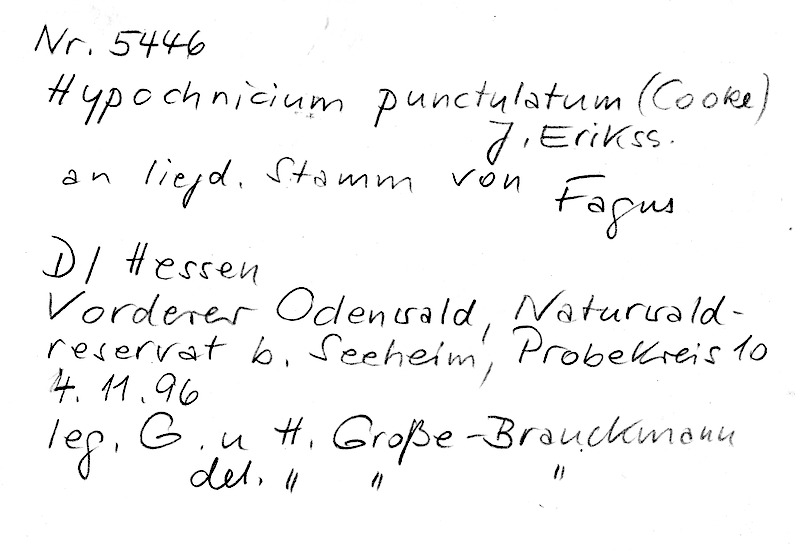 Nr. 5446
Hypochnicium punctulatum (Cooke)
J. Erikss.
an liegd. Stamm von Fagus
D/ Hessen
Vorderer Odenwald, Naturwald-
reservat b. Seeheim, Probekreis 10
4. 11. 96
leg. G. u H. Große-Brauckmann
det. " " "